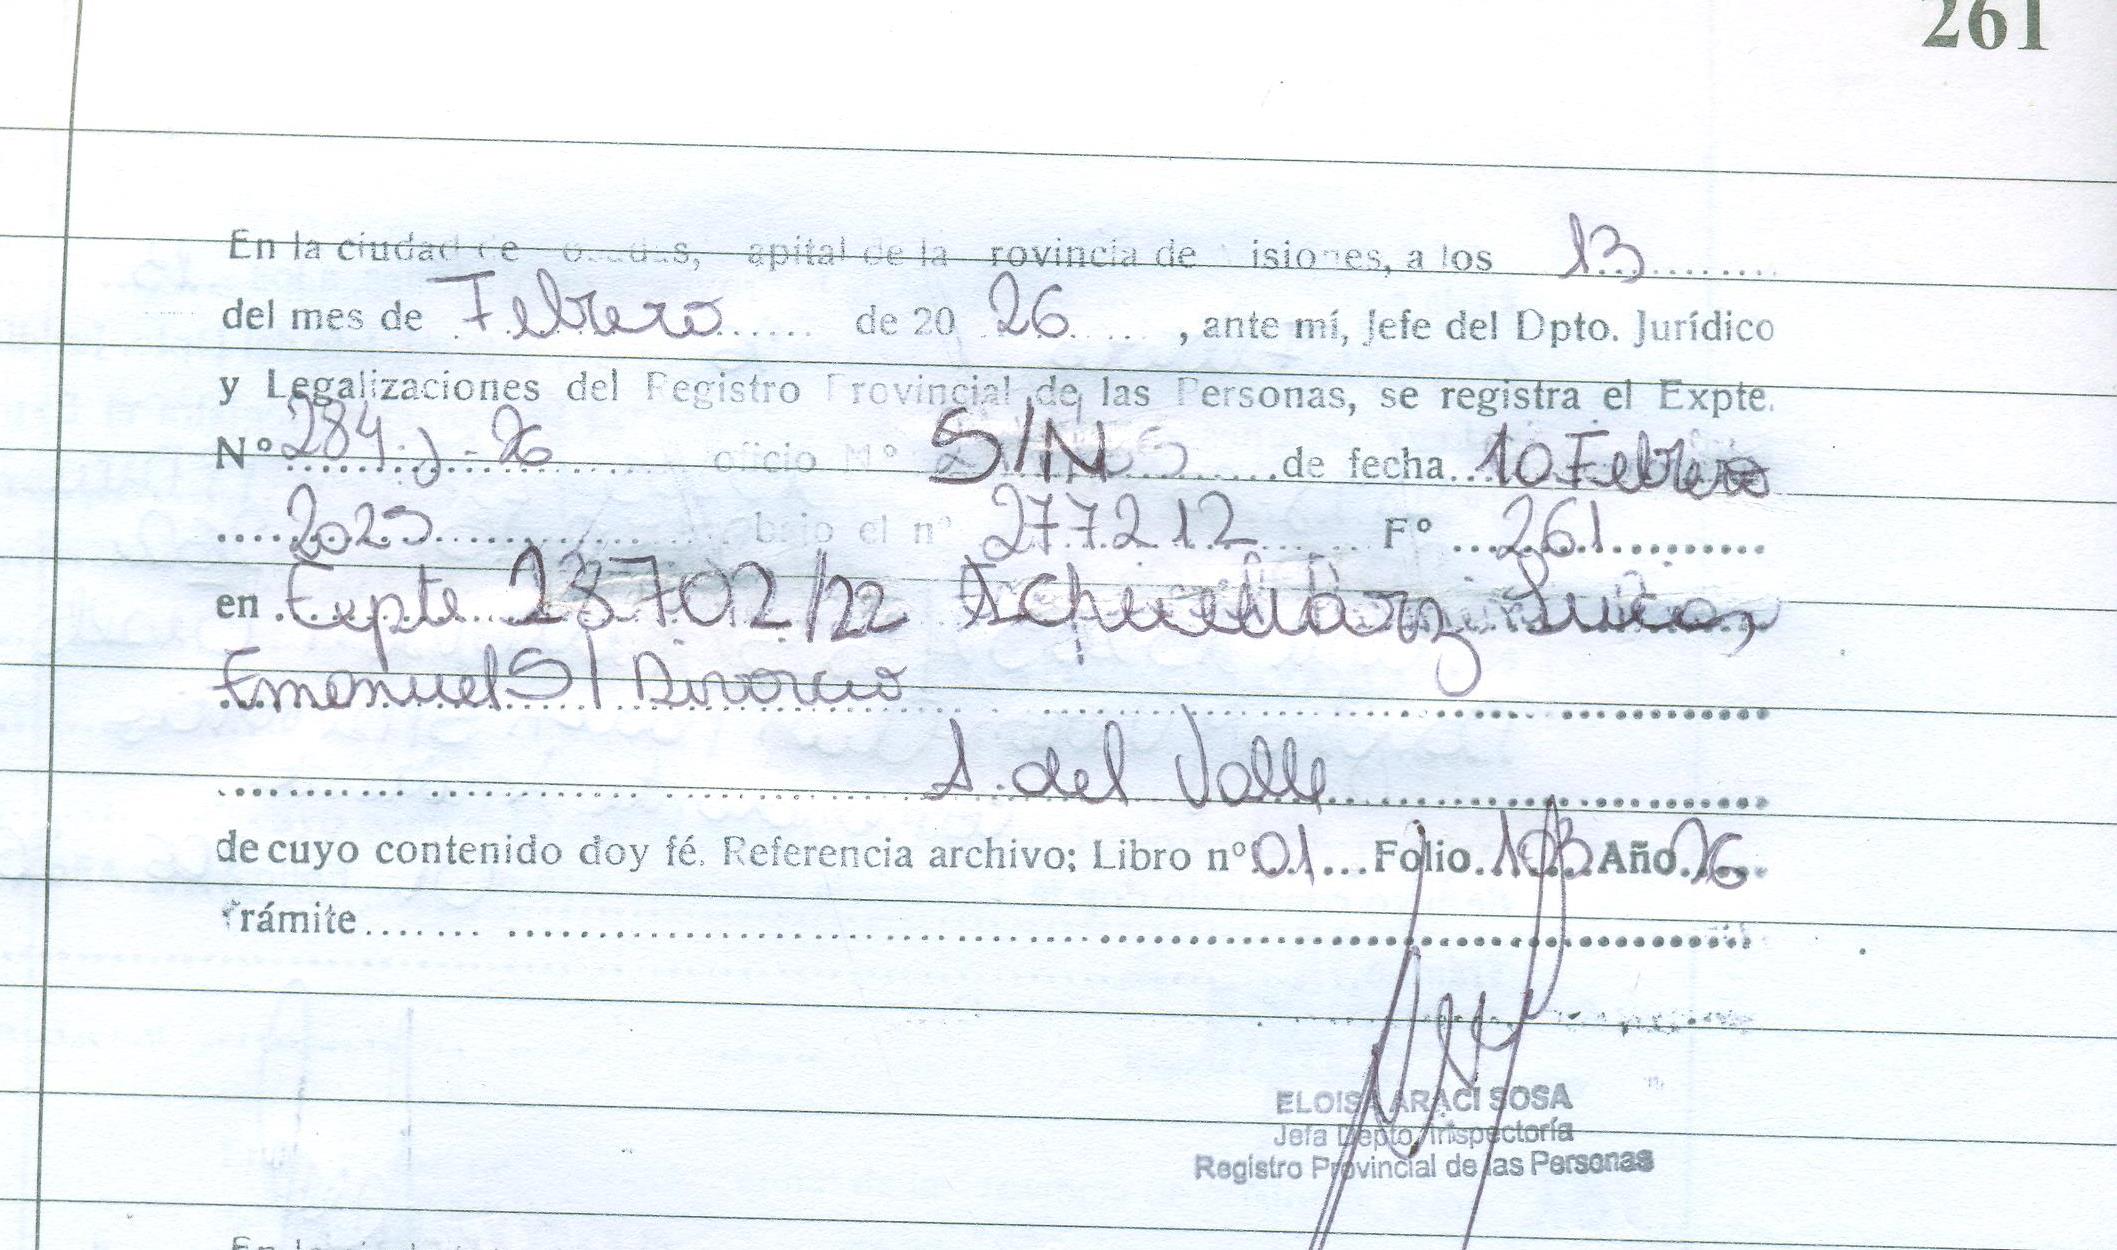 261
En la ciudad de Posadas, Capital de la Provincia de Misiones, a los 13
del mes de Febrero de 20 26, ante mí, Jefe del Dpto. Jurídico
y Legalizaciones del Registro Provincial de las Personas, se registra el Expte.
Nº 284-J-26 oficio Nº S/N de fecha 10 Febrero
2025 bajo el nº 277212 Fº 261
en Expte 28702/22 Lucas
Emanuel S/ Divorcio
A. del Valle
de cuyo contenido doy fé. Referencia archivo; Libro nº 01 Folio 103 Año 26
Trámite
ELOISA ARACI SOSA
Jefa Depto. Inspectoría
Registro Provincial de las Personas